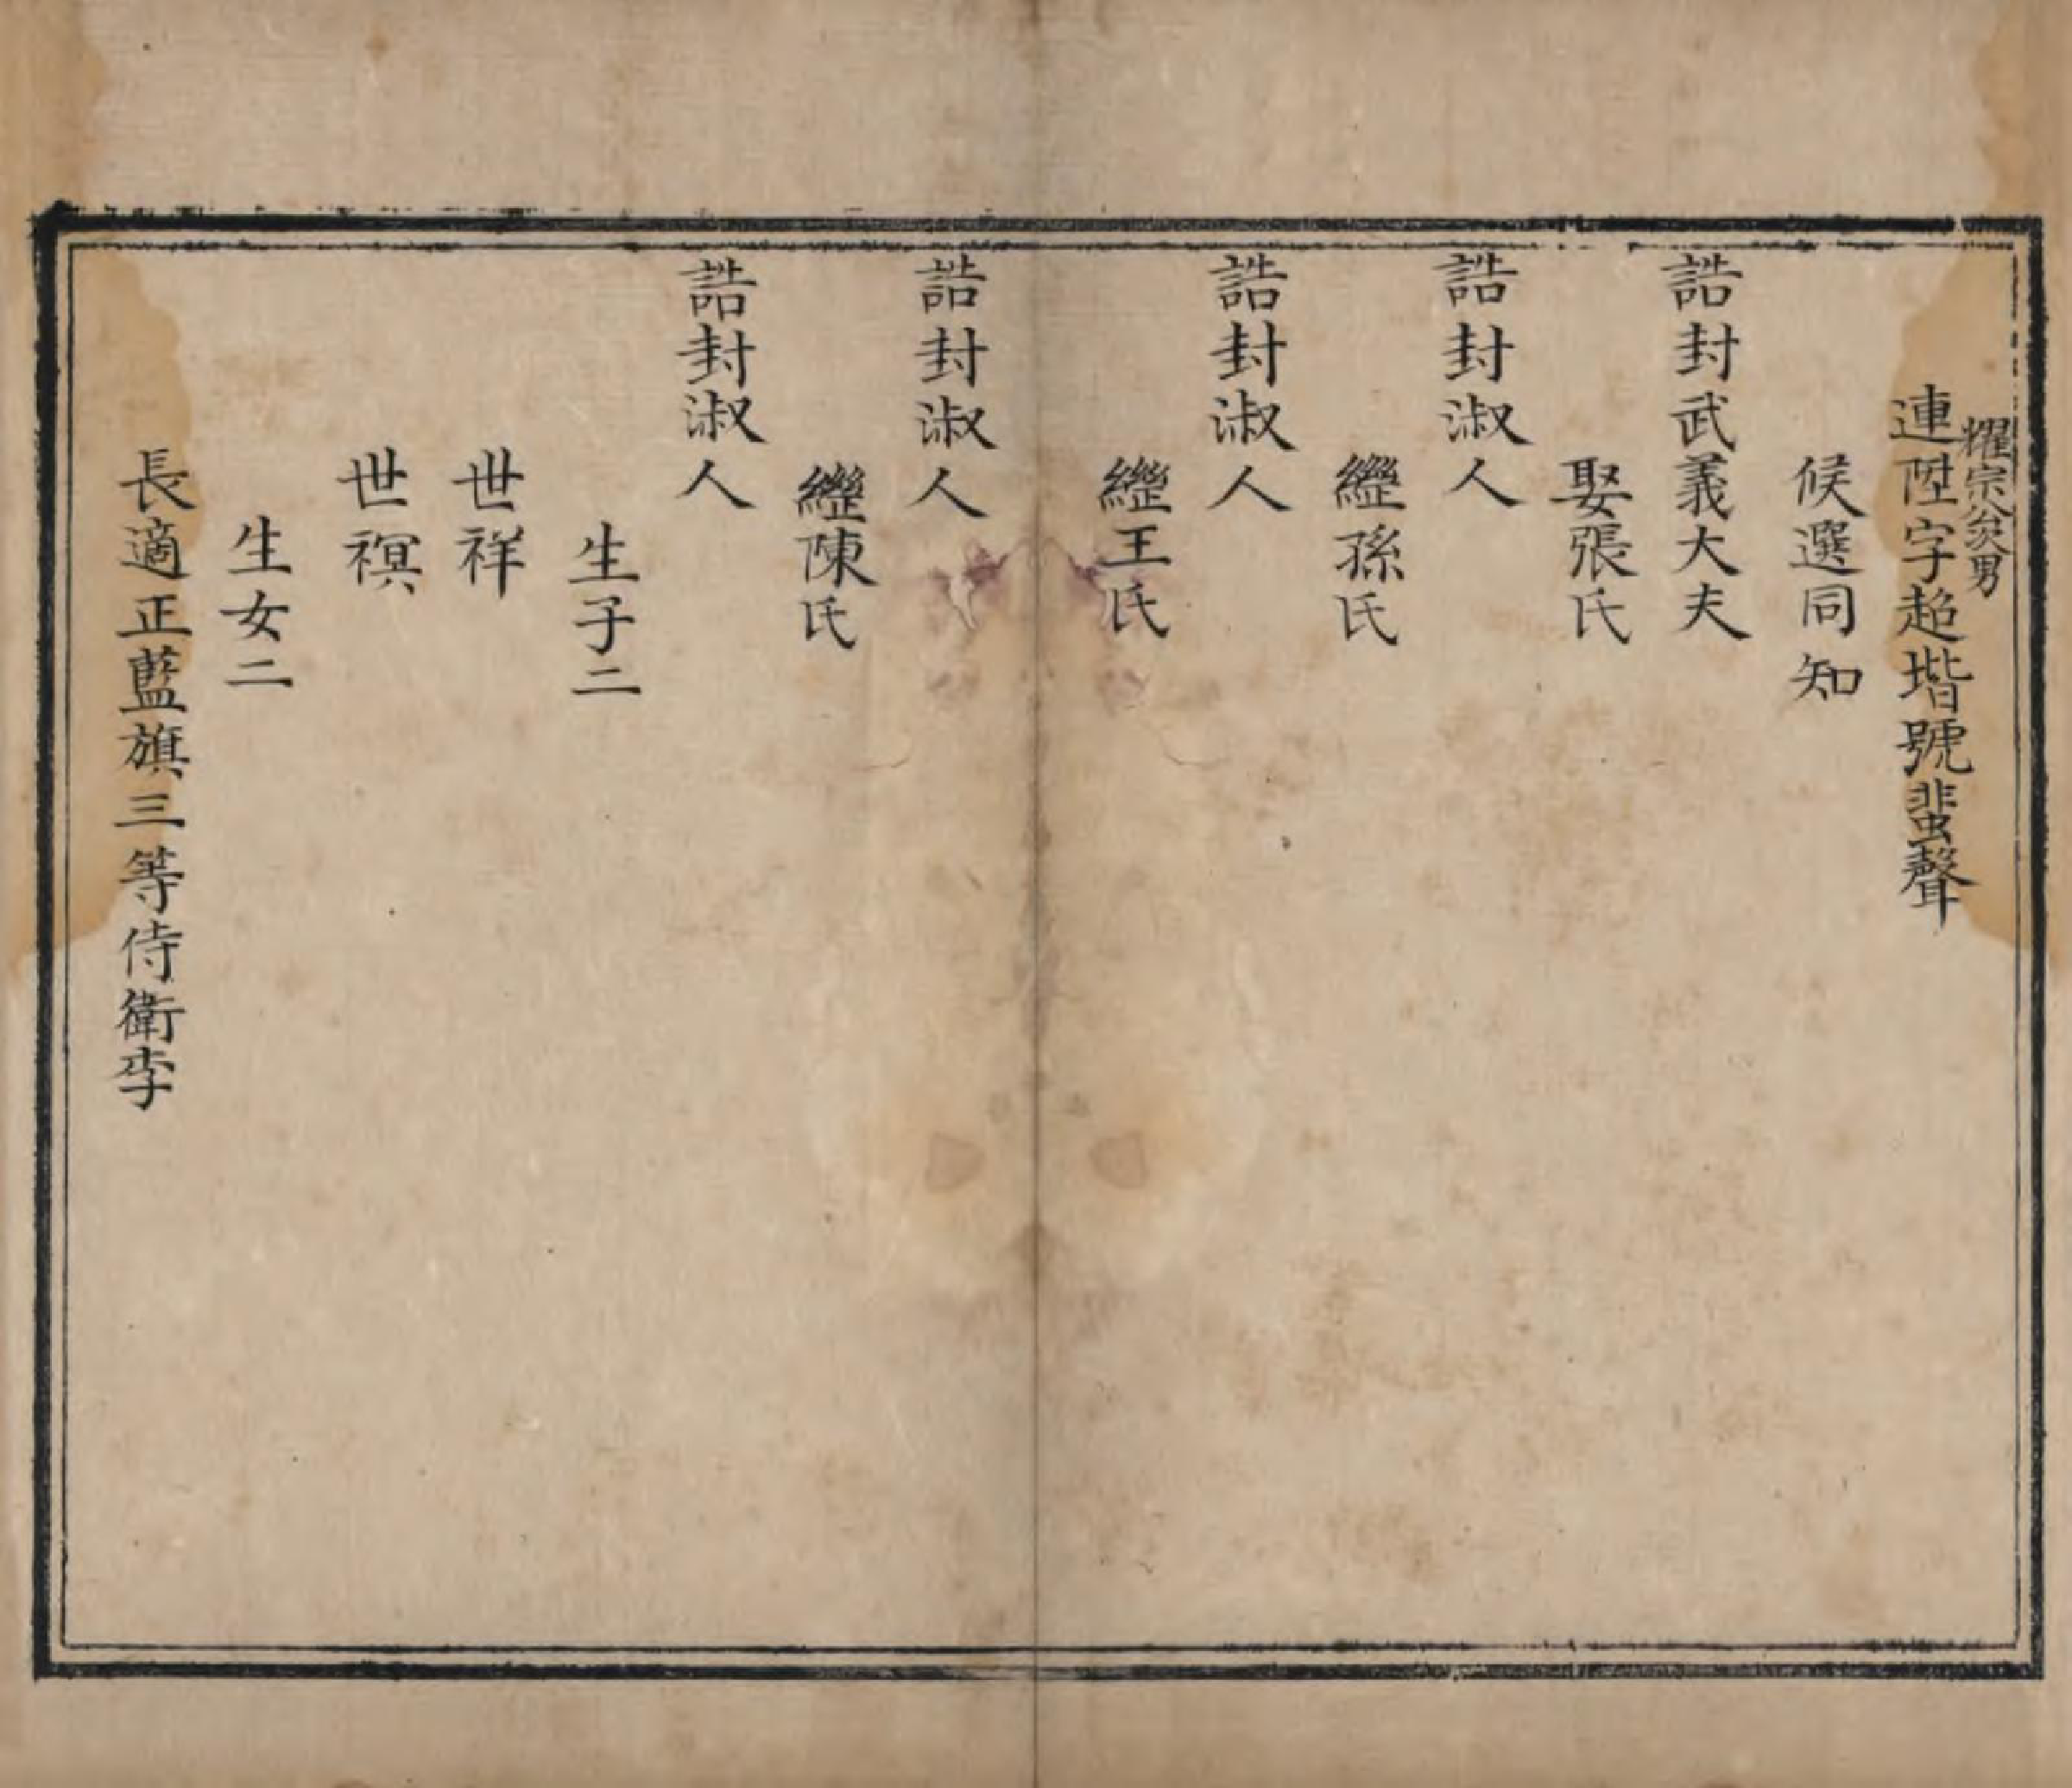 耀宗公次男
連陞字超堦號蜚聲
候選同知
誥封武義大夫
娶張氏
誥封淑人
繼孫氏
誥封淑人
繼王氏
誥封淑人
繼陳氏
誥封淑人
生子二
世祥
世禩
生女二
長適正藍旗三等侍衛李